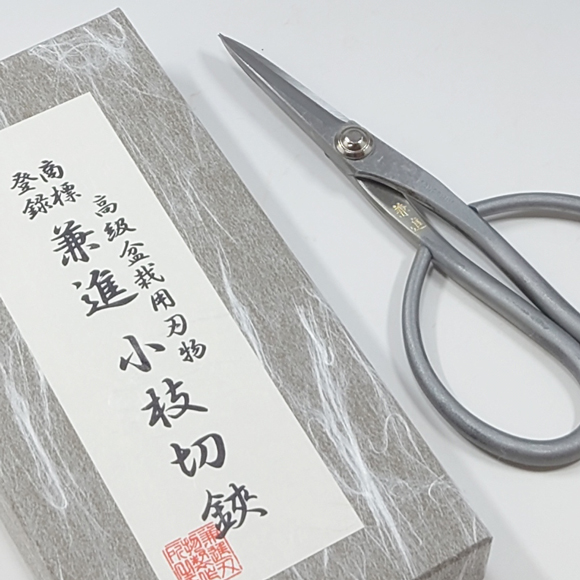 高級盆栽用刃物
商標
登録
兼進 小枝切鋏
兼進